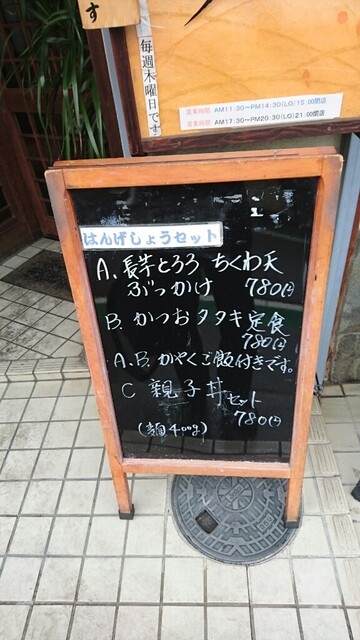 す
毎週木曜日です
営業時間 AM11:30~PM14:30(LO)15:00閉店
営業時間 AM17:30~PM20:30(LO)21:00閉店
はんげしょうセット
A、長芋とろろ ちくわ天
ぶっかけ 780円
B. かつおタタキ定食
780円
A.B. かやくご飯付きです。
C 親子丼セット
780円
(麺400g)